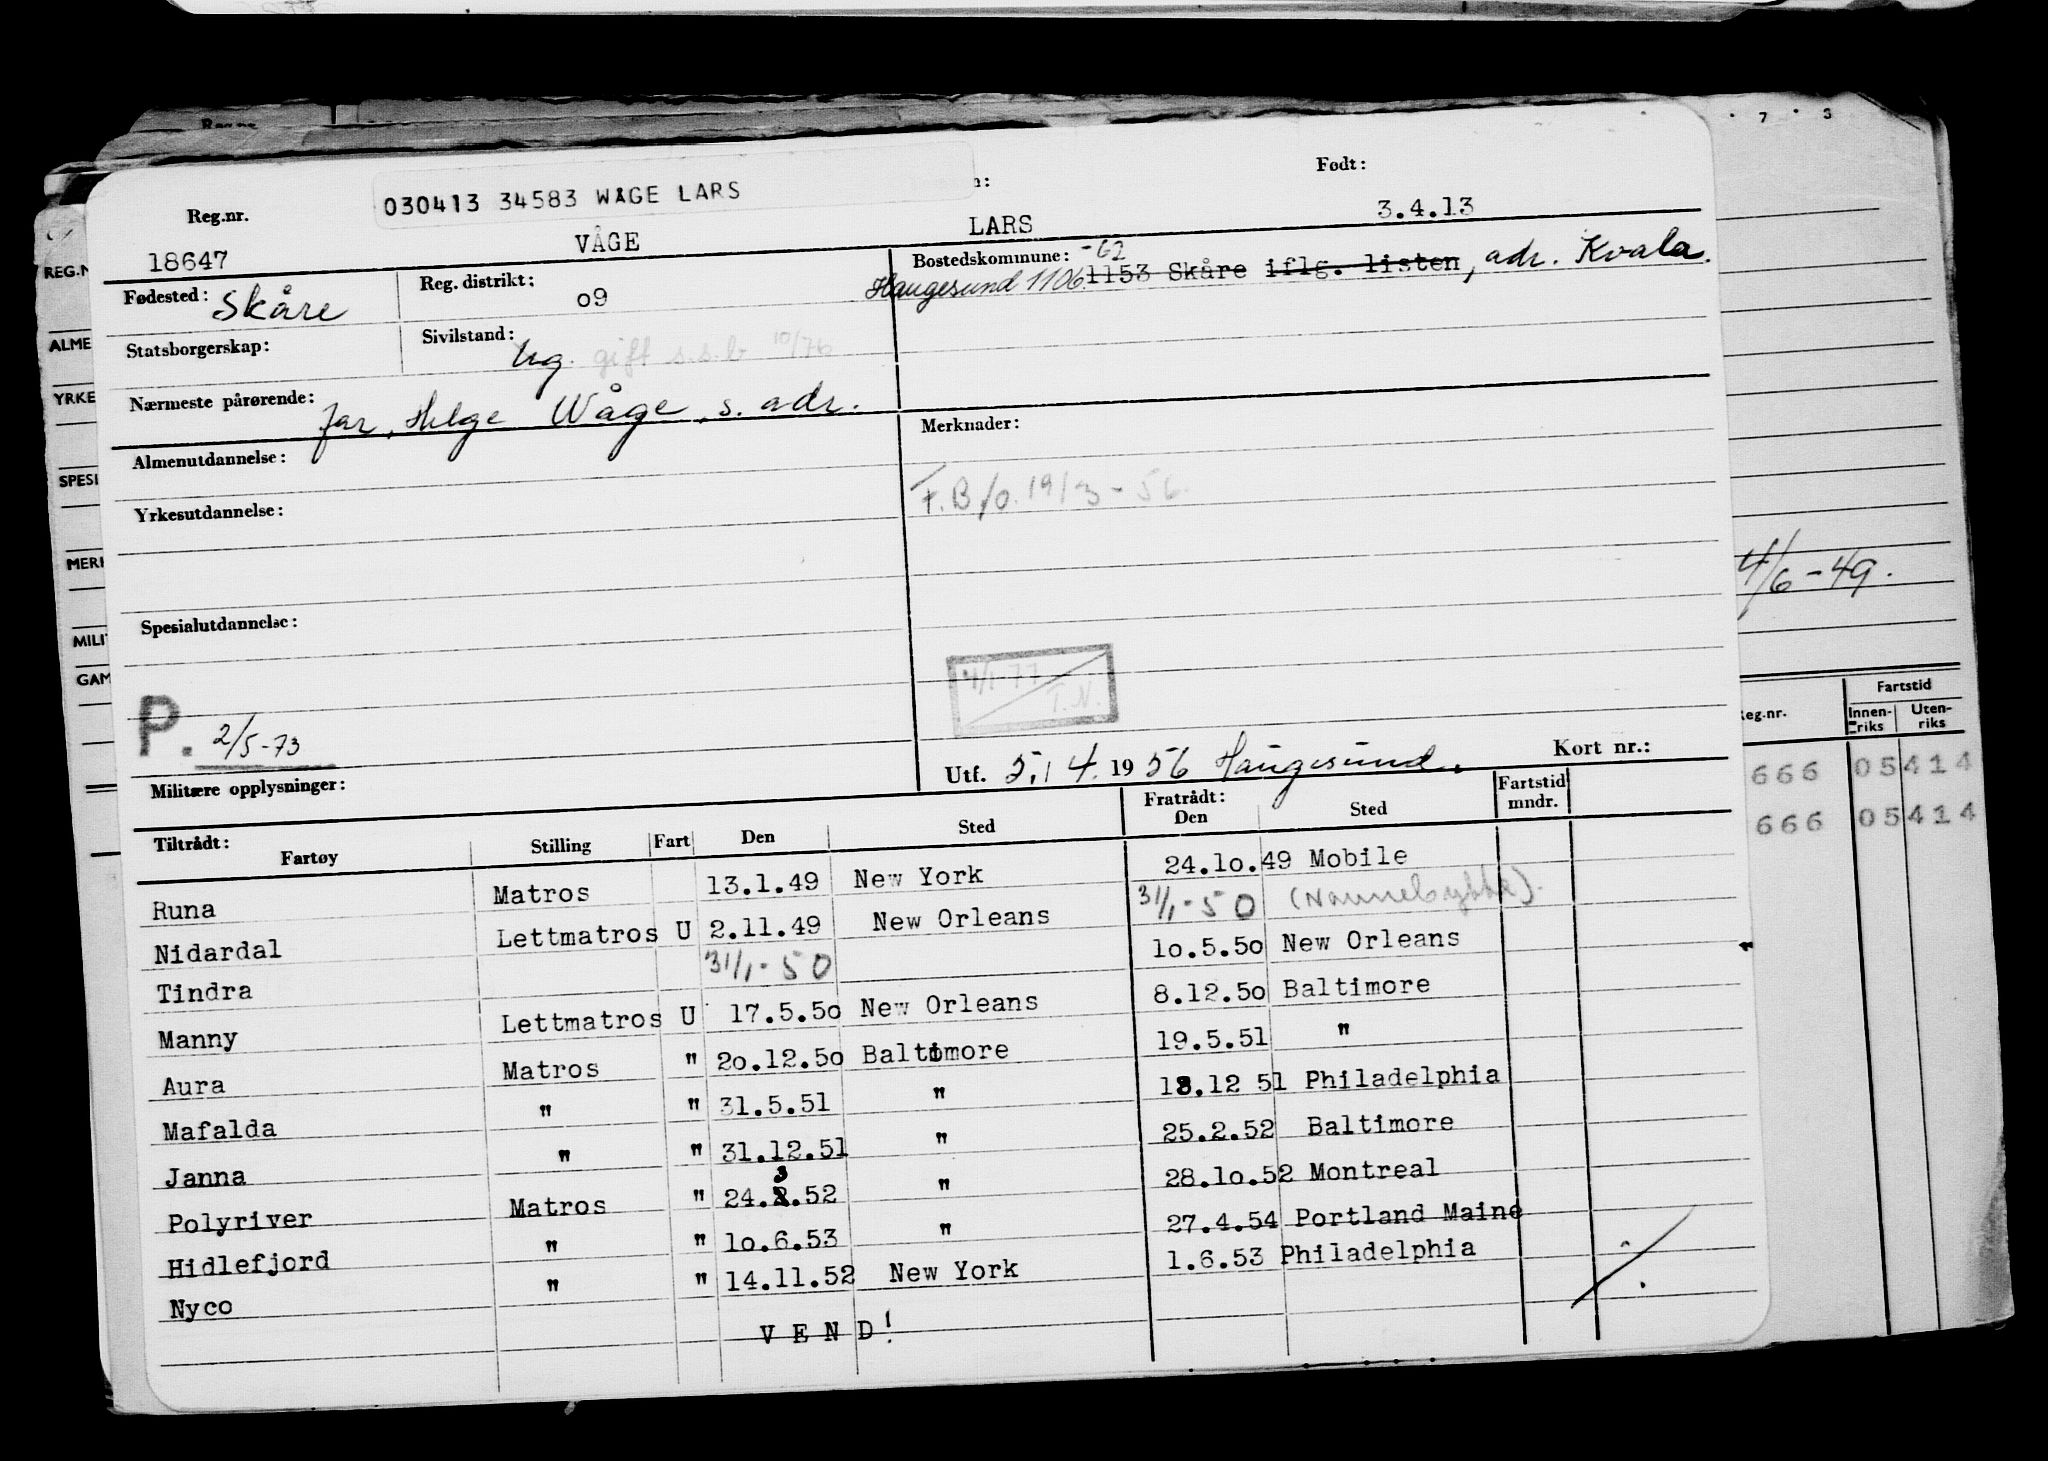 7 . 3
Født:
030413 34583 WÅGE LARS
Reg.nr.
18647 VÅGE LARS 3.4.13
Fødested: Skåre Reg. distrikt: o9 Bostedskommune: -62
Haugesund 1106. 1153 Skåre iflg. listen, adr. Kvala.
Statsborgerskap: Sivilstand: Ug. gift s.s.b 10/76
Nærmeste pårørende: far, Helge Wåge, s. adr.
Almenutdannelse: Merknader:
F.B/o. 19/3-56.
Yrkesutdannelse:
Spesialutdannelse:
4/1-77 T.N.
P. 2/5-73
Utf. 5.4. 1956 Haugesund. Kort nr.:
Militære opplysninger:
Tiltrådt: Fratrådt: Fartstid
Fartøy Stilling Fart Den Sted Den Sted mndr.
Runa Matros 13.1.49 New York 24.lo.49 Mobile
Nidardal Lettmatros U 2.11.49 New Orleans 31/1-50
Tindra 31/1-50 lo.5.5o New Orleans
Manny Lettmatros U 17.5.5o New Orleans 8.12.5o Baltimore
Aura Matros " 2o.12.5o Baltimore 19.5.51 "
Mafalda " " 31.5.51 " 18.12 51 Philadelphia
Janna " " 31.12.51 " 25.2.52 Baltimore
Polyriver Matros " 24.3.52 " 28.lo.52 Montreal
Hidlefjord " " lo.6.53 " 27.4.54 Portland Maine
Nyco " " 14.11.52 New York 1.6.53 Philadelphia
V E N D!
REG.N
ALME
YRKE
SPESI
MERK
MILIT
GAM
4/6-49.
Fartstid
Reg.nr. Innenriks Utenriks
666 05 414
666 05 414